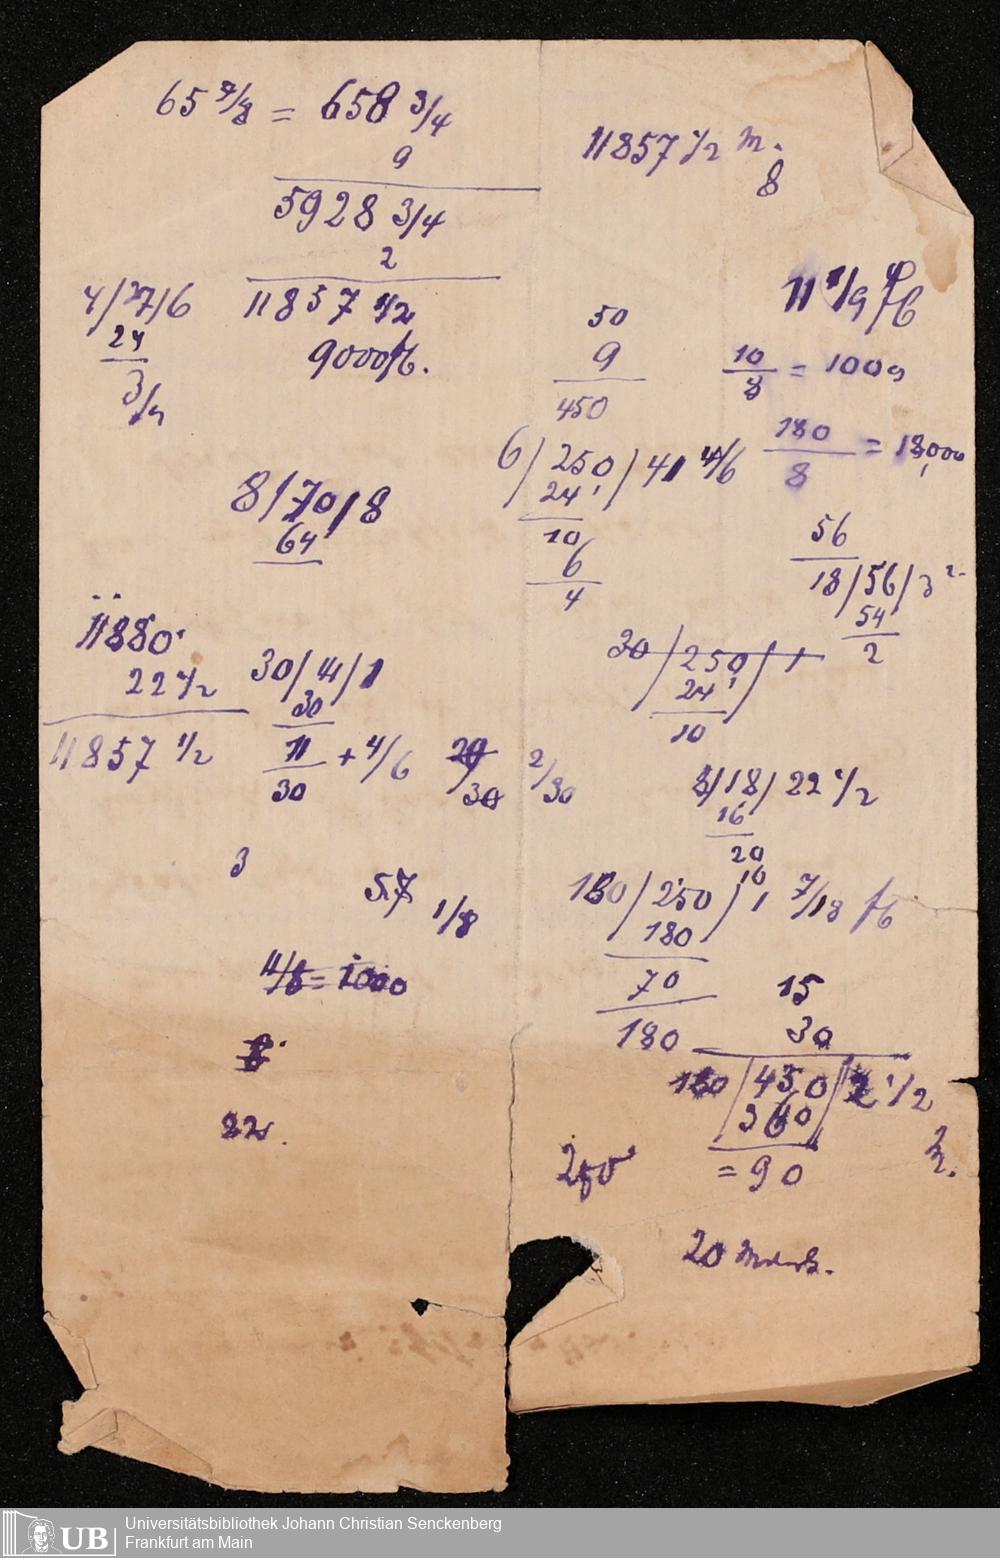 65 7/8 = 658 3/4
9
5928 3/4
2
11857 1/2
9000 fl.
4/27/6
24
3/4
8/70/8
64
11880
22 1/2
11857 1/2
30/41/1
30
11/30 + 4/6
29/30
2/30
3
57
1/8
11/8 = 1000
8
22
11857 1/2 M.
8
11 1/9
50
9
450
10/8 = 1000
180/8 = 18,000
6/250/41 4/6
24
10
6
4
56
18/56/3 2
54
2
30/250/1
24
10
8/18/22 1/2
16
20
180/250/1 7/18
180
70
180
15
30
180/450/2 1/2
360
= 90
250
20 Mark.
UB
Universitätsbibliothek Johann Christian Senckenberg
Frankfurt am Main